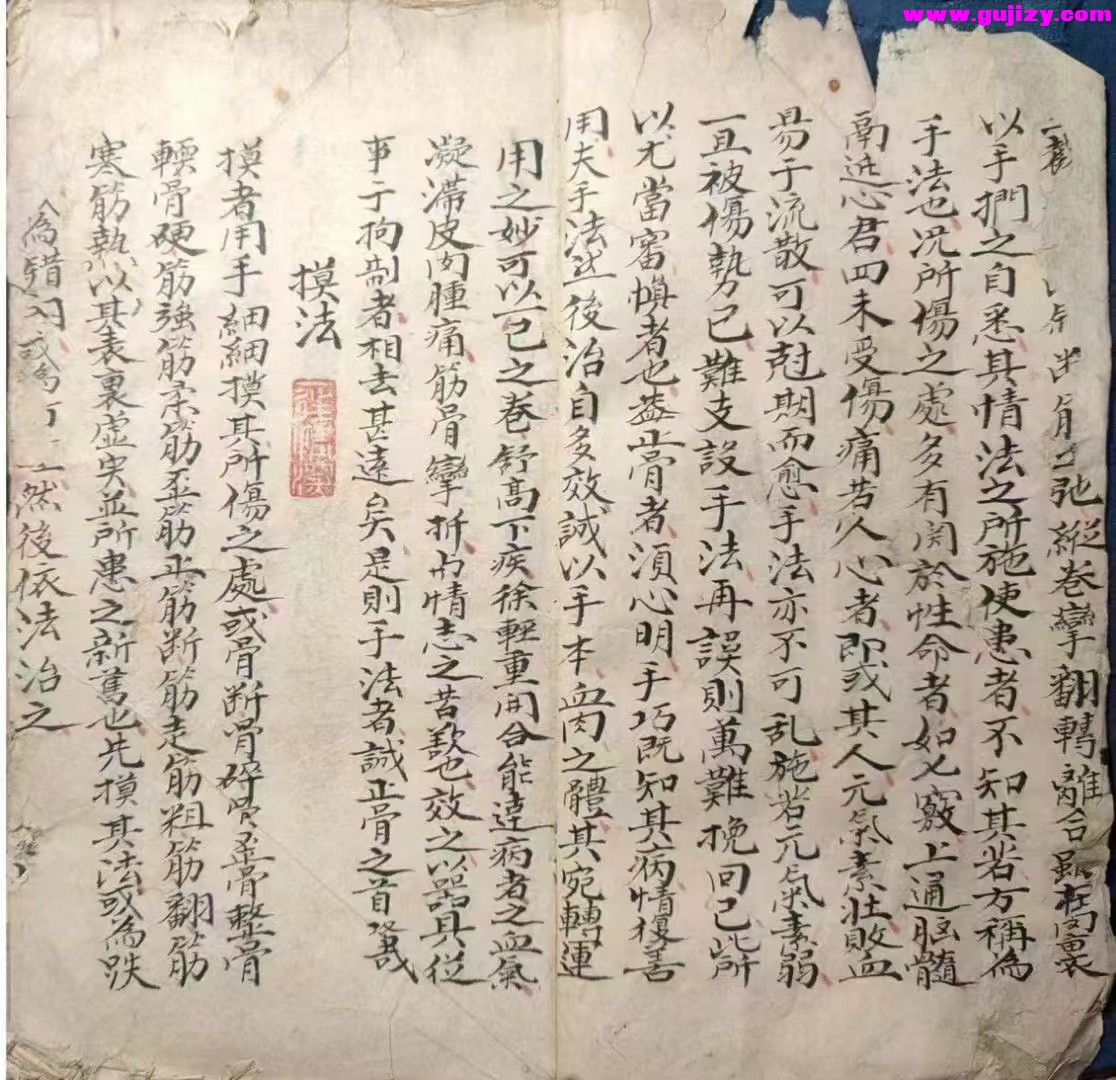 截弛縱卷攣翻轉離合雖在肉裏
以手捫之自悉其情法之所施使患者不知其苦方稱為
手法也况所傷之處多有関於性命者如七竅上通脳髓
鬲近心君四末受傷痛苦入心者即或其人元氣素壯敗血
易于流散可以尅期而愈手法亦不可乱施若元氣素弱
一旦被傷勢已難支設手法再誤則萬難挽回已此所
以尤當審慎者也盖正骨者須心明手巧既知其病情復善
用夫手法然後治自多效誠以手本血肉之體其宛轉運
用之妙可以一已之卷舒高下疾徐輕重開合能達病者之血氣
凝滯皮肉腫痛筋骨攣折与情志之苦歎也效之以器具從
事于拘制者相去甚遠矣是則手法者誠正骨之首務哉
摸法
摸者用手細細摸其所傷之處或骨断骨碎骨歪骨整骨
輭骨硬筋強筋柔筋歪筋正筋断筋走筋粗筋翻筋
寒筋熱以其表裏虛实並所患之新舊也先摸其法或為跌
為錯或為然後依法治之
www.gujizy.com